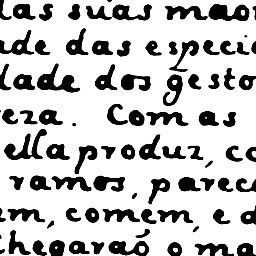 das suas maor
ade das especie
dade dos gesto
reza. Com as
ella produz, co
ramos, parece
em, comem, e d
chegaraõ o ma